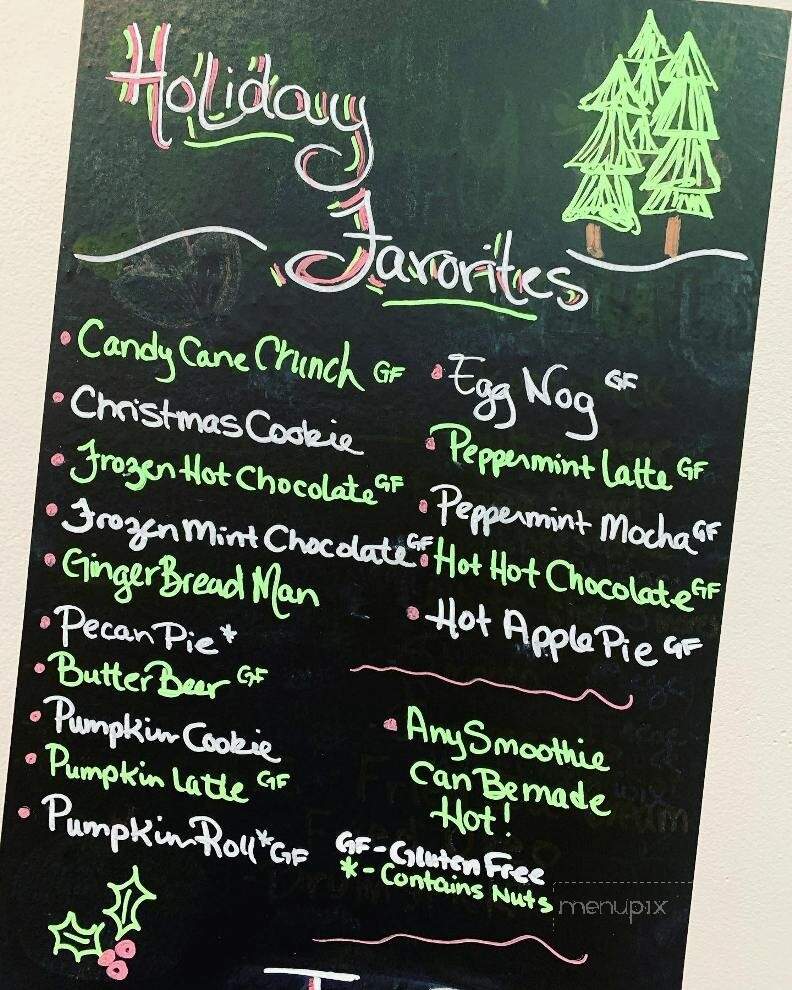 Holiday
Favorites
Candy Cane Crunch GF
Christmas Cookie
Frozen Hot Chocolate GF
Frozen Mint Chocolate GF
GingerBread Man
Pecan Pie*
Butter Beer GF
Pumpkin Cookie
Pumpkin Latte GF
Pumpkin Roll* GF
Egg Nog GF
Peppermint Latte GF
Peppermint Mocha GF
Hot Hot Chocolate GF
Hot Apple Pie GF
Any Smoothie
Can Be made
Hot!
GF - Gluten Free
* - Contains Nuts
menupix